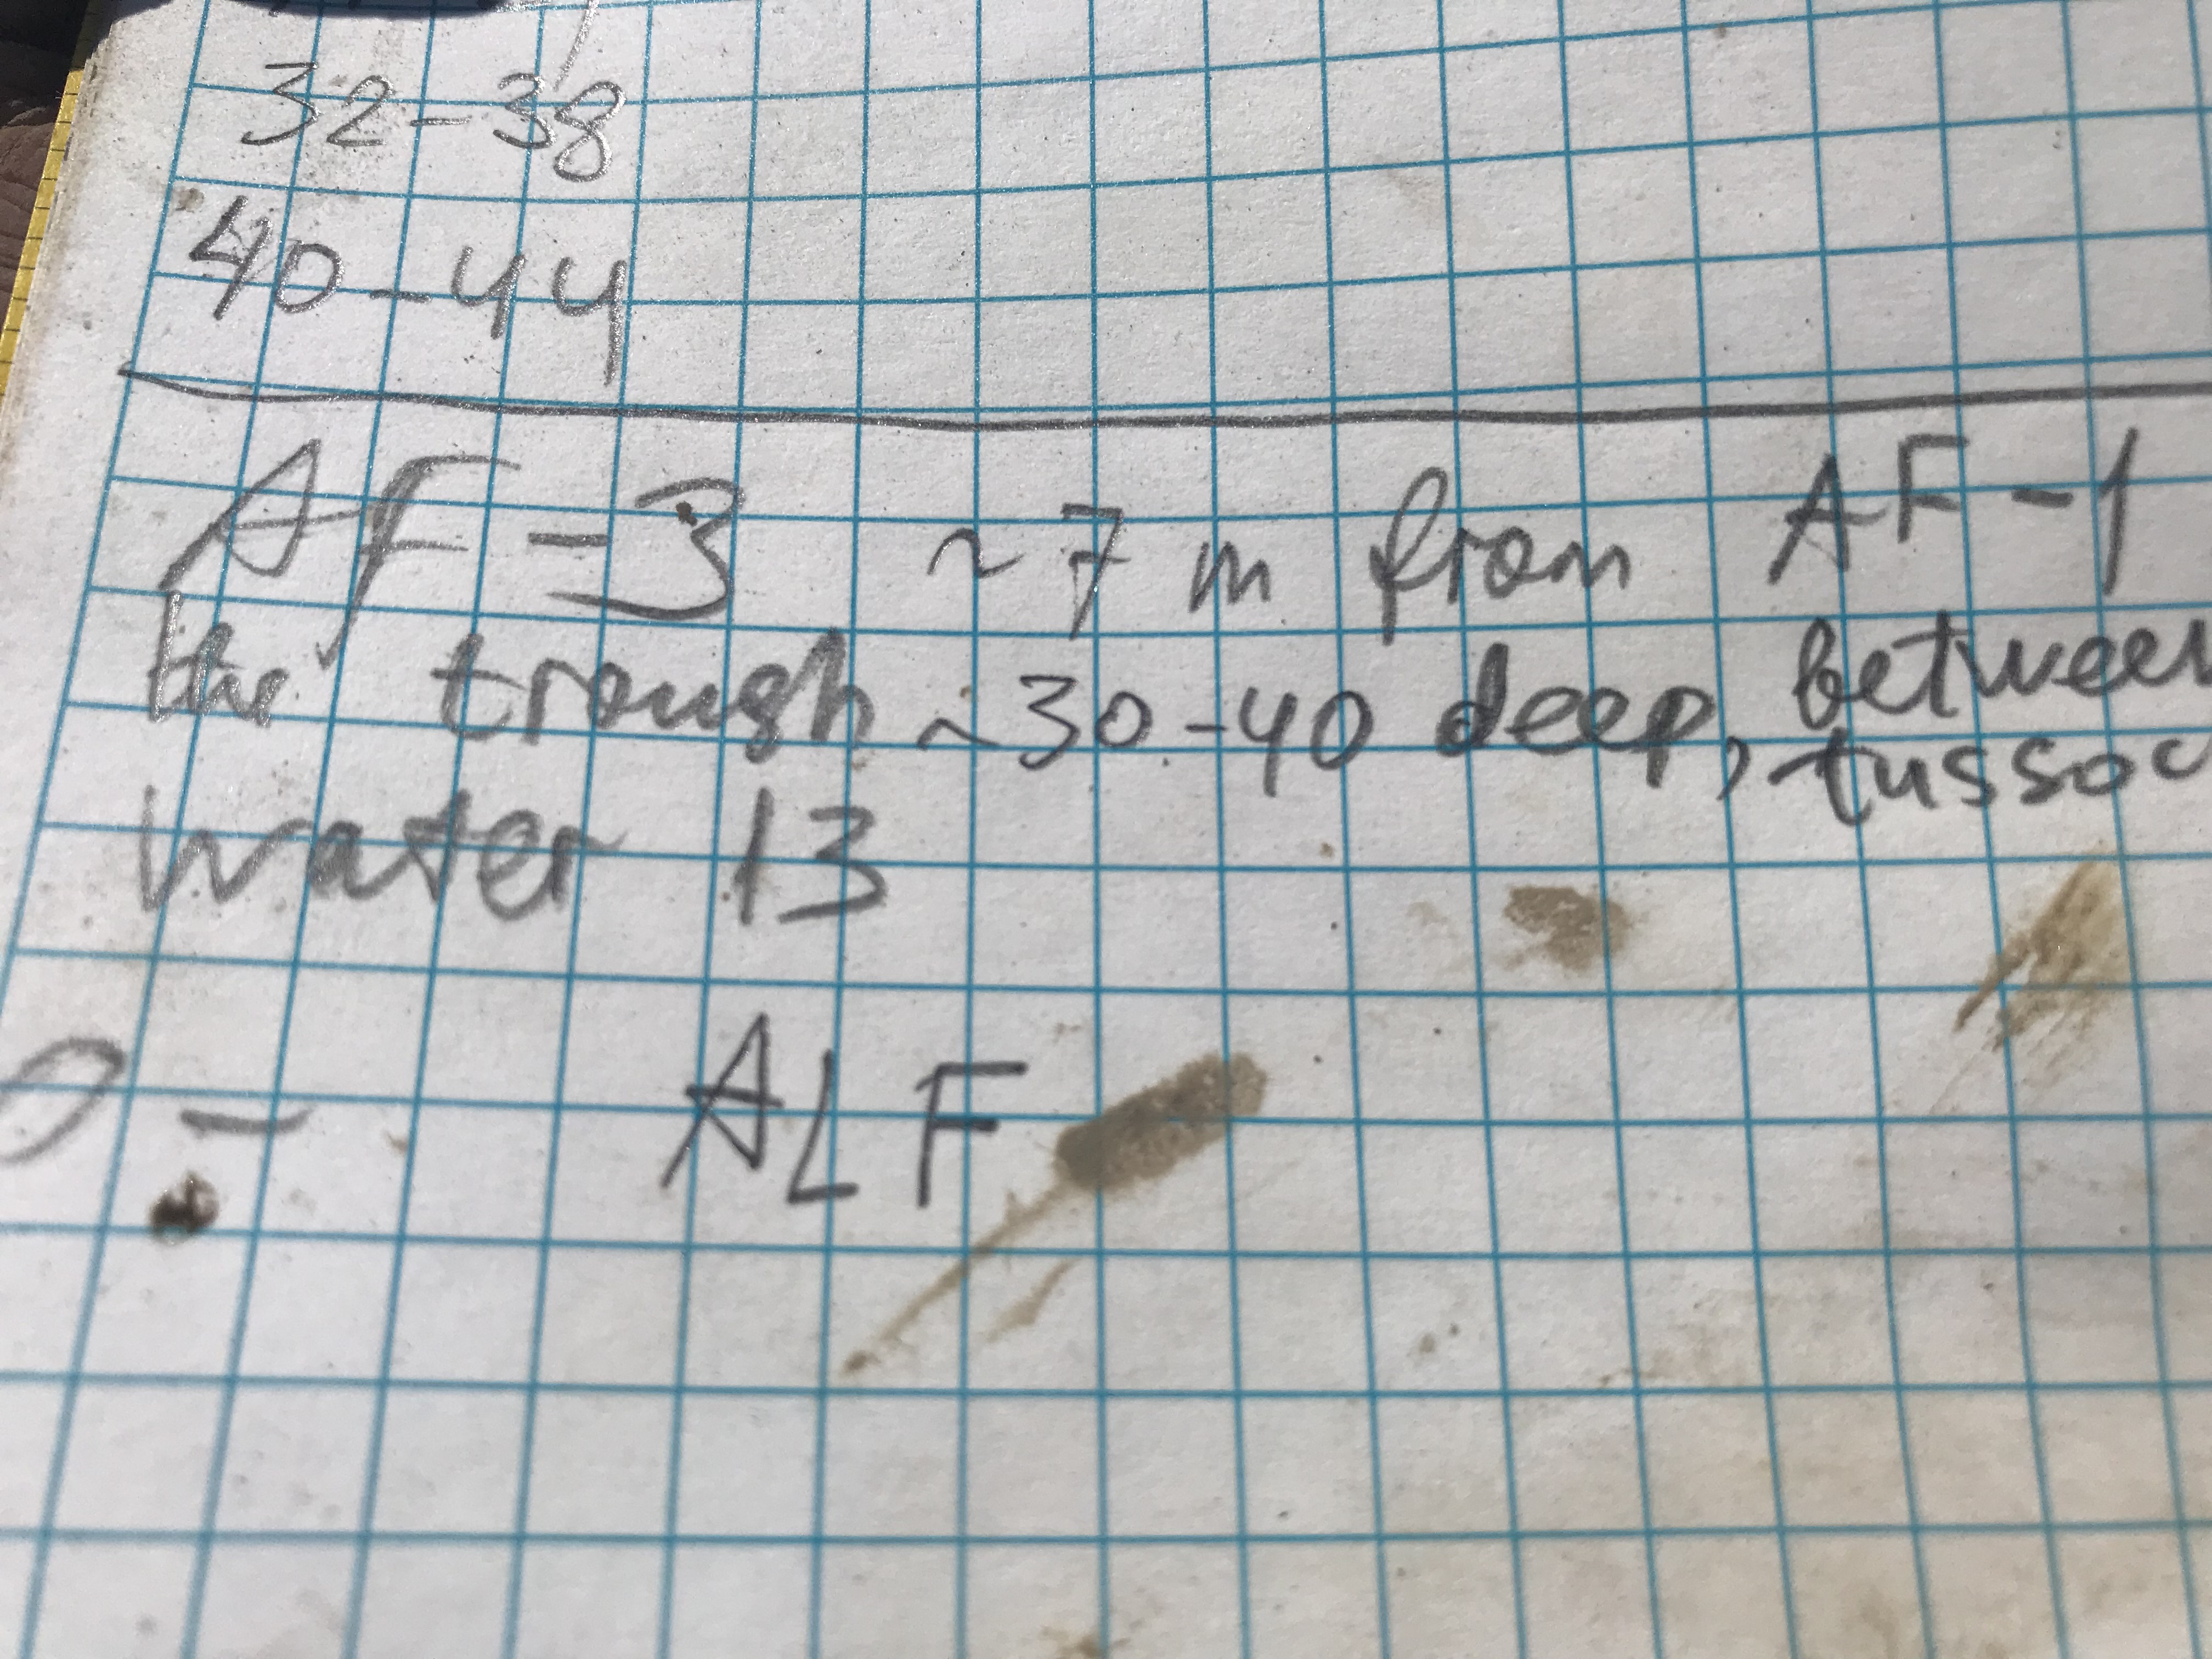 32-38
40-44
AF-3 ~7 m from AF-1
the trough ~30-40 deep, between
tussoc
water 13
0 - ALF